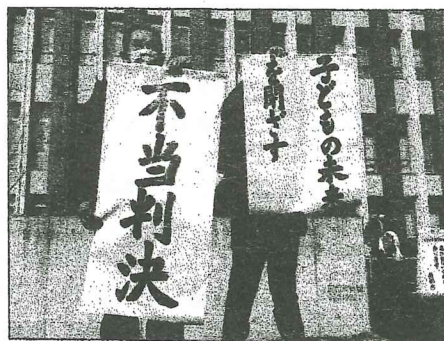 不当判決
子どもの未来
を閉ざす